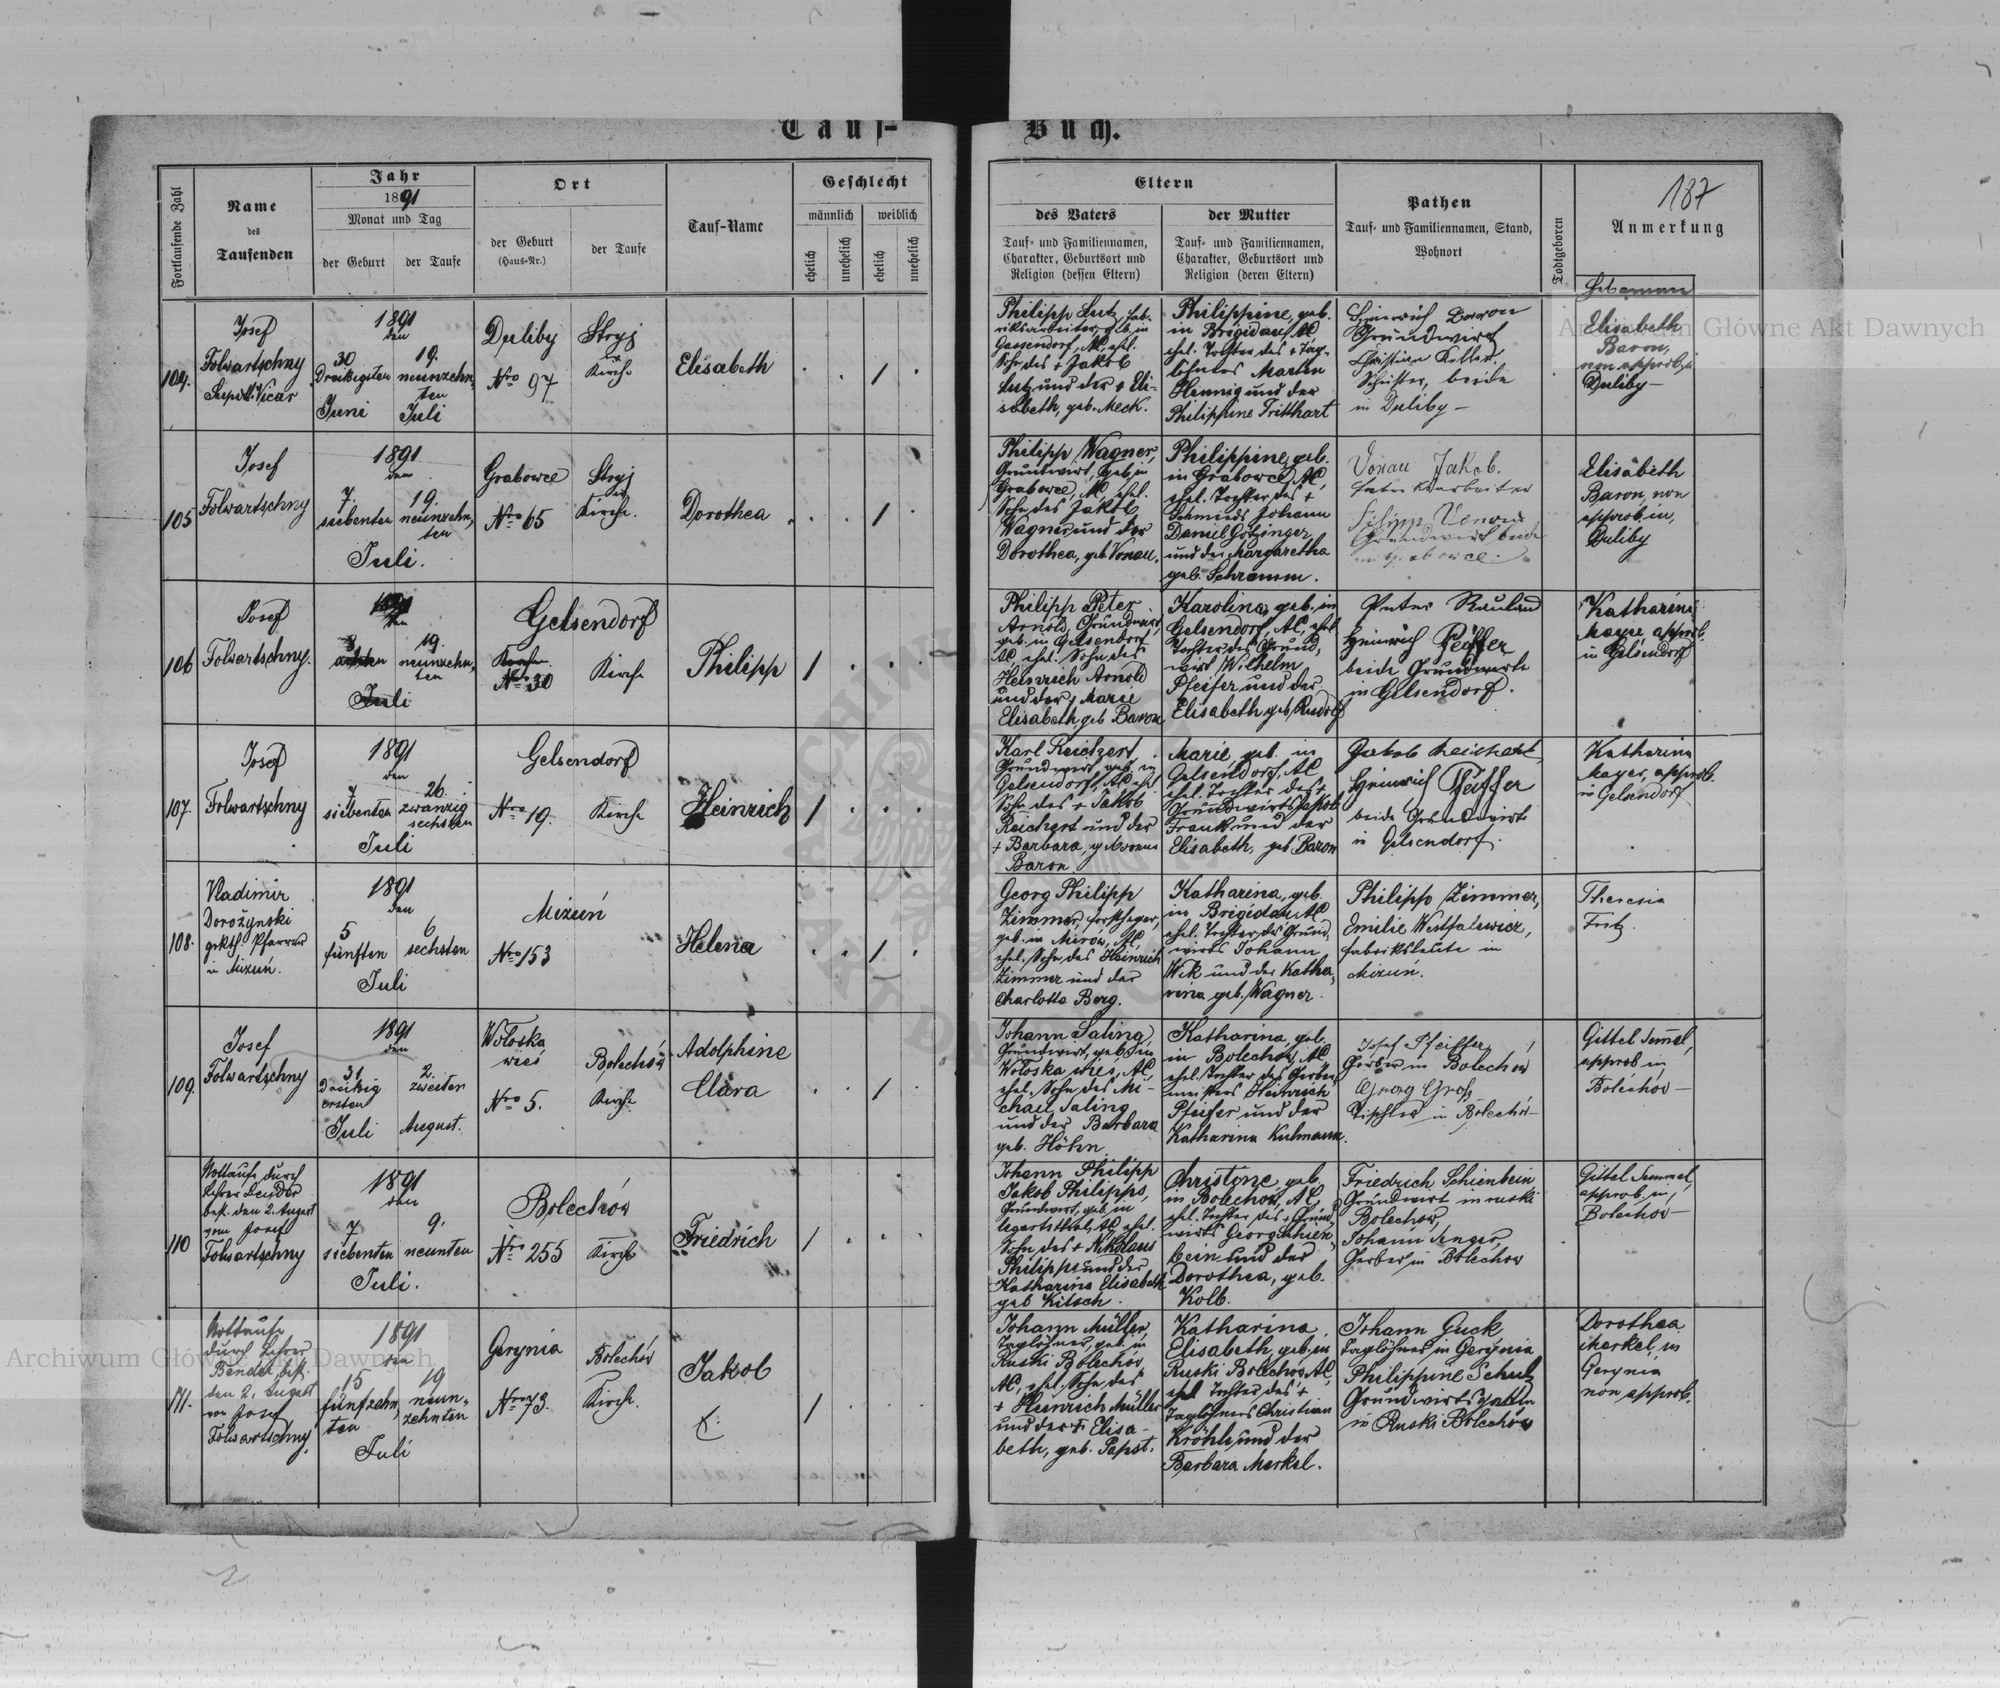 Tauf-
Buch.
187
Fortlaufende Zahl
Name
des
Taufenden
Jahr
1891
Monat und Tag
der Geburt
der Taufe
Ort
der Geburt
(Haus-Nr.)
der Taufe
Tauf-Name
Geschlecht
männlich
weiblich
ehelich
unehelich
ehelich
unehelich
Eltern
des Vaters
Tauf- und Familiennamen,
Charakter, Geburtsort und
Religion (dessen Eltern)
der Mutter
Tauf- und Familiennamen,
Charakter, Geburtsort und
Religion (deren Eltern)
Pathen
Tauf- und Familiennamen, Stand,
Wohnort
Todtgeboren
Anmerkung
104.
Josef
Folwartschny
Vicar
1891
den
30
Dreissigsten
Juni
19.
neunzehn,
ten
Juli
Duliby
Nro 97
Stryj
Kirche
Elisabeth
1
Philipp Lutz, fab-
riksarbeiter, geb. in
Gassendorf, AC, ehel.
Sohn des + Jakob
Lutz und der + Eli-
sabeth, geb. Meck.
Philippine, geb.
in Brigidau, AC
ehel. Tochter des + Tag-
löhners Martin
Hennig und der
Philippine Tritthart
Heinrich Baron
Grundwirt
Christian Keller
Schuster, beide
in Duliby
Elisabeth
Baron,
non approb, in
Duliby
105
Josef
Folwartschny
1891
den
7.
siebenten
19.
neunzehn,
ten
Juli.
Grabowce
Nro 65
Stryj
Kirche.
Dorothea
1
Philipp Wagner,
Grundwirt, geb. in
Grabowce, AC, ehel.
Sohn des Jakob
Wagner und der
Dorothea, geb. Vonau.
Philippine, geb.
in Grabowce, AC,
ehel. Tochter des +
Schmieds Johann
Daniel Götzinger
und der Margaretha
geb. Schramm.
Vonau Jakob.
Fabriksarbeiter
Filipp Vonau
Grundwirt beide
in Grabowce.
Elisabeth
Baron, non
approb. in,
Duliby
106
Josef
Folwartschny.
1891
den
8
achten
19.
neunzehn,
ten
Juli
Gelsendorf
Nro 30
Kirche
Philipp
1
Philipp Peter
Arnold, Grundwirt,
geb. in Gelsendorf
AC ehel. Sohn des
Heinrich Arnold
und der Marie
Elisabeth, geb Baron
Karolina, geb. in
Gelsendorf, AC, ehel.
Tochter des Grund,
wirt Wilhelm
Pfeifer und der
Elisabeth geb. Rudolf
Peter Rauland
Heinrich Pfeiffer
beide Grundwirte
in Gelsendorf.
Katharina
Mayer, approb.
in Gelsendorf
107.
Josef
Folwartschny
1891
den
7
siebenten
26.
zwanzig
sechsten
Juli
Gelsendorf
Nro 19.
Kirche
Heinrich
1
Karl Reichert
Grundwirt, geb. in
Gelsendorf, AC ehel.
Sohn des + Jakob
Reichert und der
+ Barbara, geborene
Baron
Marie, geb. in
Gelsendorf, AC
ehel. Tochter des +
Grundwirts Jakob
Frank und der
Elisabeth, geb. Baron
Jakob Reichert
Heinrich Pfeiffer
beide Grundwirte
in Gelsendorf.
Katharina
Mayer, approb.
in Gelsendorf
108.
Vladimir
Dorożynski
grkth. Pfarrer
in Mizuń.
1891
den
5
fünften
6
sechsten
Juli
Mizuń
Nro 153
Helena
1
Georg Philipp
Zimmer, forstheger,
geb. in Mirów, AC,
ehel. Sohn des Heinrich
Zimmer und der
Charlotte Berg.
Katharina, geb.
in Brigidau AC
ehel. Tochter des Grund,
wirts Johann
Wik und der Katha,
rina geb. Wagner.
Philipp Zimmer,
Emilie Westfalewicz,
fabriksleute in
Mizun.
Theresia
109.
Josef
Folwartschny
1891
den
31
Dreissig
ersten
Juli
2.
zweiten
August.
Wołoska
wieś
Nro 5.
Bolechów
Kirche
Adolphine
Clara
1
Johann Saling
Grundwirt, geb. in
Wołoska wies, AC
ehel. Sohn des Mi-
chael Saling
und der Barbara
geb. Höhn
Katharina, geb.
in Bolechów, AC
ehel. Tochter des Gerber,
meisters Heinrich
Pfeifer und der
Katharina Kulmann.
Josef Pfeiffer
Gerber in Bolechów
Georg Groß
Tischler in Bolechów
Gittel Semel,
approb. in
Bolechów
110
Nottaufe durch
Lehrer Bender
best. den 2. August
vom Josef
Folwartschny
1891
den
7
siebenten
9.
neunten
Juli.
Bolechów
Nro 255
Kirche
Friedrich
1
Johann Philipp
Jakob Philipps,
Grundwirt, geb. in
Ugartsthal, AC, ehel.
Sohn des + Nikolaus
Philipps und der
Katharina Elisabeth
geb Kitsch.
Christine, geb.
in Bolechów, AC,
ehel. Tochter des + Grund,
wirts Georg Schien,
bein und der
Dorothea, geb.
Kolb.
Friedrich Schienbein
Grundwirt in ruski
Bolechow,
Johann Senger,
Gerber in Bolechów
Gittel Semmel,
approb. in,
Bolechów
111.
Nottaufe
durch Lehrer
Bender, best.
den 2. August
von Josef
Folwartschny.
1891
den
15
fünfzehn,
ten
19
neun-
zehnten
Juli
Gerynia
Nro 73.
Bolechów
Kirche.
Jakob
1
Johann Müller,
Taglöhner, geb. in
Ruski Bolechow,
AC, ehel. Sohn des
+ Heinrich Müller
und der + Elisa-
beth, geb. Papst.
Katharina
Elisabeth, geb. in
Ruski Bolechow, AC,
ehel Tochter des +
Taglöhners Christian
Kröhle und der
Barbara Merkel.
Johann Guck
Taglöhner in Gerynia
Philippine Schulz
Grundwirtsgattin
in Ruski Bolechów
Dorothea
Merkel, in
Gerynia
non approb.
Archiwum Główne Akt Dawnych
Archiwum Główne Akt Dawnych